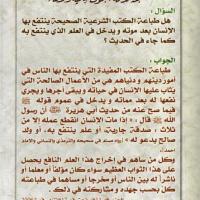 السؤال :
هل طباعة الكتب الشرعية الصحيحة ينتفع بها
الإنسان بعد موته و يدخل في العلم الذي ينتفع به
كما جاء في الحديث ؟
الجواب :
طباعة الكتب المفيدة التي ينتفع بها الناس في
أمور دينهم و دنياهم هي من الأعمال الصالحة التي
يثاب عليها الإنسان في حياته و يبقى أجرها و يجري
نفعها له بعد مماته و يدخل في عموم قوله ﷺ
فيما صح عنه من حديث أبي هريرة أن رسول
الله ﷺ قال : « إذا مات الإنسان انقطع عمله إلا من
ثلاث : صدقة جارية، أو علم ينتفع به، أو ولد
صالح يدعو له »
وكل من ساهم في إخراج هذا العلم النافع يحصل
على هذا الثواب العظيم سواء كان مؤلفاً أو معلماً أو
ناشراً له بين الناس أو مخرجاً أو مساهماً في طباعته
كل بحسب جهده و مشاركته في ذلك